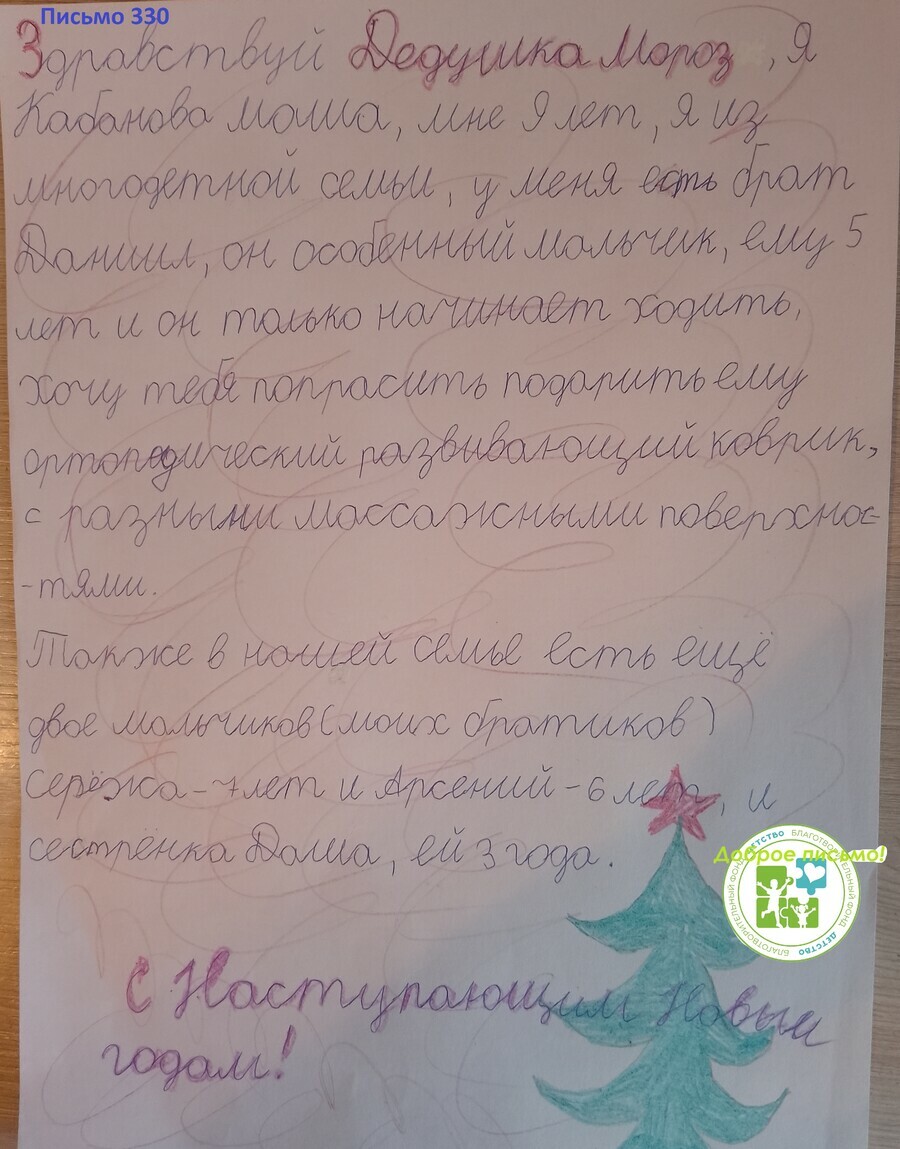 Письмо 330
Здравствуй Дедушка Мороз, я
Кабанова Маша, мне 9 лет, я из
многодетной семьи, у меня есть брат
Даниил, он особенный мальчик, ему 5
лет и он только начинает ходить,
хочу тебя попрасить подарить ему
ортопедический развивающий коврик,
с разными массажными поверхнос-
-тями.
Также в нашей семье есть ещё
двое мальчиков (моих братиков)
Серёжа - 7 лет и Арсений - 6 лет, и
сестрёнка Даша, ей 3 года.
Доброе письмо!
БЛАГОТВОРИТЕЛЬНЫЙ ФОНД ДЕТСТВО
БЛАГОТВОРИТЕЛЬНЫЙ ФОНД ДЕТСТВО
С Наступающим Новым
годам!